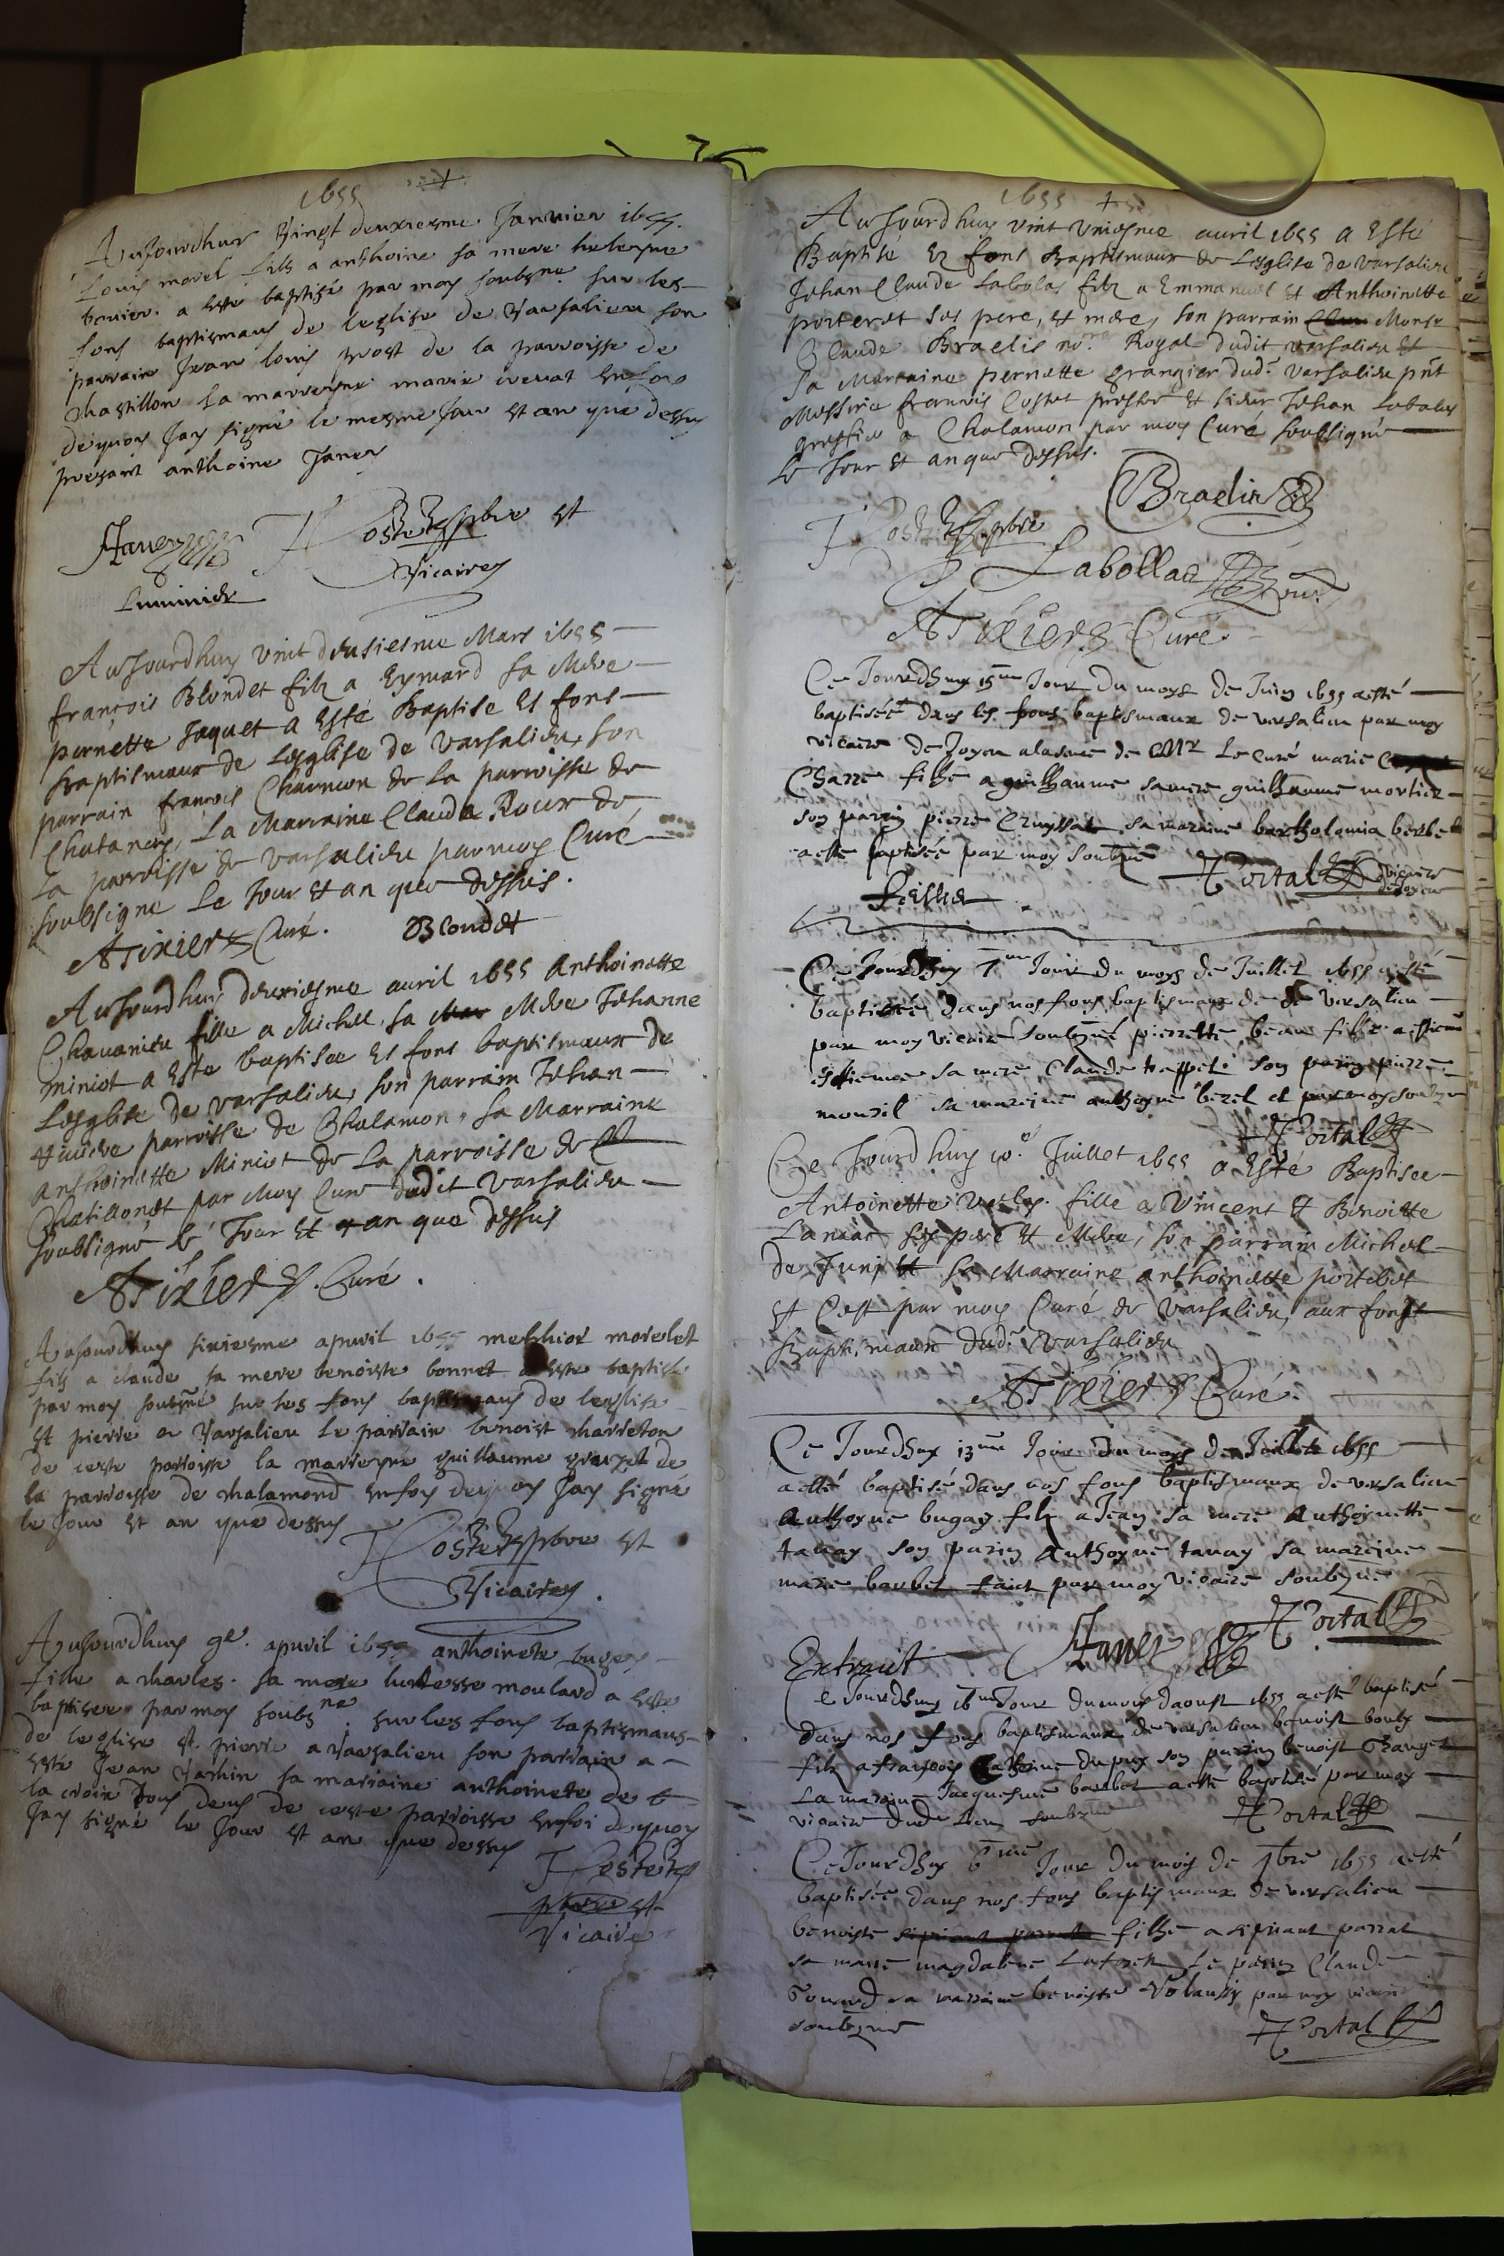 1655
Aujourdhuy Vingt deuxiesme Janvier 1655.
Louis morel filz a anthoine sa mere heleyne
bouier a este baptizé par moy soubzne sur les
fons baptismaus de leglise de Varsalieu son
parrain Jean louis prost de la parroisse de
chastillon la marreyne marie
de quoy Jay signé le mesme Jour et an que dessus
presant anthoine Janer
Janer Coster pbre et
Vicaire
Luminier
Aujourdhuy vint deusiesme Mars 1655
françois Blondet filz a Eymard sa Mere
pernette Jaquet a Esté Baptise Es fons
baptismaux de Lesglise de Varsalieu, son
parrain francois Charmon de La parroisse de
Chatanay, La Marraine Clauda Roux de
La parroisse de varsalieu par moy Curé
soubsigne Le Jour et an que dessus.
ATixier Curé. Blondet
Aujourdhuy deuxiesme auril 1655 Anthoinette
Chauanieu fille a Michel, sa Mere Jehanne
miniot a Este baptisee Es fons baptismaux de
Lesglise de varsalieu, son parrain Jehan
parroisse de Chalamon, sa Marraine
Anthoinette Miniot de La parroisse de
Chatillonet par Moy Cure dudit varsalieu
soubsigné le Jour et an que dessus
ATixier Curé.
Aujourdhuy sixiesme apuril 1655 melchior morelet
filz a claude sa mere benoiste bonnet a este baptisé
par moy soubzné sur les fons baptismaus de leglise
St pierre a Varsalieu le parrain benoist charreton
de ceste parroisse la marreyne guillaume de
la parroisse de chalamond en foy de quoy Jay signé
le Jour et an que dessus
Coster pbre et
Vicaire.
Aujourdhuy 9e. apuril 1655 anthoinete buges
fille a charles. sa mere moulard a este
baptisee par moy soubzne. sur les fons baptismaus
de leglise St. pierre a Varsalieu son parrain a
esté Jean Jamin sa marraine anthoinete de
la croix tous deux de ceste parroisse en foi de quoy
Jay signé le Jour et an que dessus
Coster
pbre et
Vicaire
1655
Aujourdhuy vint Uniesme auril 1655 a Esté
Baptisé Es fons Baptismaux de Lesglise de varsalieu
Jehan Claude Labolas filz a Emmanuel et Anthoinette
porteret ses pere, et mere, son parrain Monsr
Claude Braelis nore Royal dudit varsalieu et
sa Marraine pernette grangier dudt varsalieu pnt
Messire francois Costet prestre et sieur Jehan Labolas
greffier a Chalamon par moy Curé soubsigné
Le Jour et an que dessus.
Coster pbre Braelis
Labollas
ATixier Curé.
Ce Jourdhuy 15me Jour du moys de Juin 1655 a esté
baptisée dans les fons baptismaux de versalieu par moy
vicaire de Joyeu de Mr Le curé marie
Charre fillie a guilhaume sa mere guilhaume mortier
son parrin pierre Cruyssat sa maraine bartholomia berbet
a esté baptisée par moy soubzne Portal vicaire
Ce Jourdhuy 7me Jour du moys de Juillet 1655 a esté
baptisée dans nos fons baptismaux de versalieu
par moy vicaire soubzné pierrette beau fillie a
estienne sa mere Claude trappet son parrin pierre
mouril sa maraine anthoyne bezel et par moy soubzne
Portal
Ce Jourdhuy 10e Juillet 1655 a Esté Baptisee
Antoinette fille a Vincent et Benoiste
Laniac ses pere et Mere, son parrain Michel
de Juny sa Marraine anthoinette portebot
et Cest par moy Curé de varsalieu, aux fons
Baptismaux dudt Varsalieu
ATixier Curé.
Ce Jourdhuy 13me Jour du moys de Juillet 1655
a esté baptisé dans nos fons baptismaux de versalieu
Anthoyne bugay filz a Jean sa mere Anthoynette
tauay son parrin Anthoyne tauay sa maraine
marie barbet faict par moy vicaire soubzne
Extraict Janer Portal
Ce Jourdhuy 16me Jour du mois daoust 1655 a esté baptisé
dans nos fons baptismaux de versalieu benoist
filz a françois dupuy son parrin benoist
La maraine Jacquesme barbet a esté baptisé par moy
vicaire dudt Lieu soubzne Portal
Ce Jourdhuy 6me Jour du moys de 7bre 1655 a esté
baptisée dans nos fons baptismaux de versalieu
benoiste fillie a parrat
sa mere magdaleine Le parrin Claude
sa marraine benoiste par moy vicaire
soubzne Portal